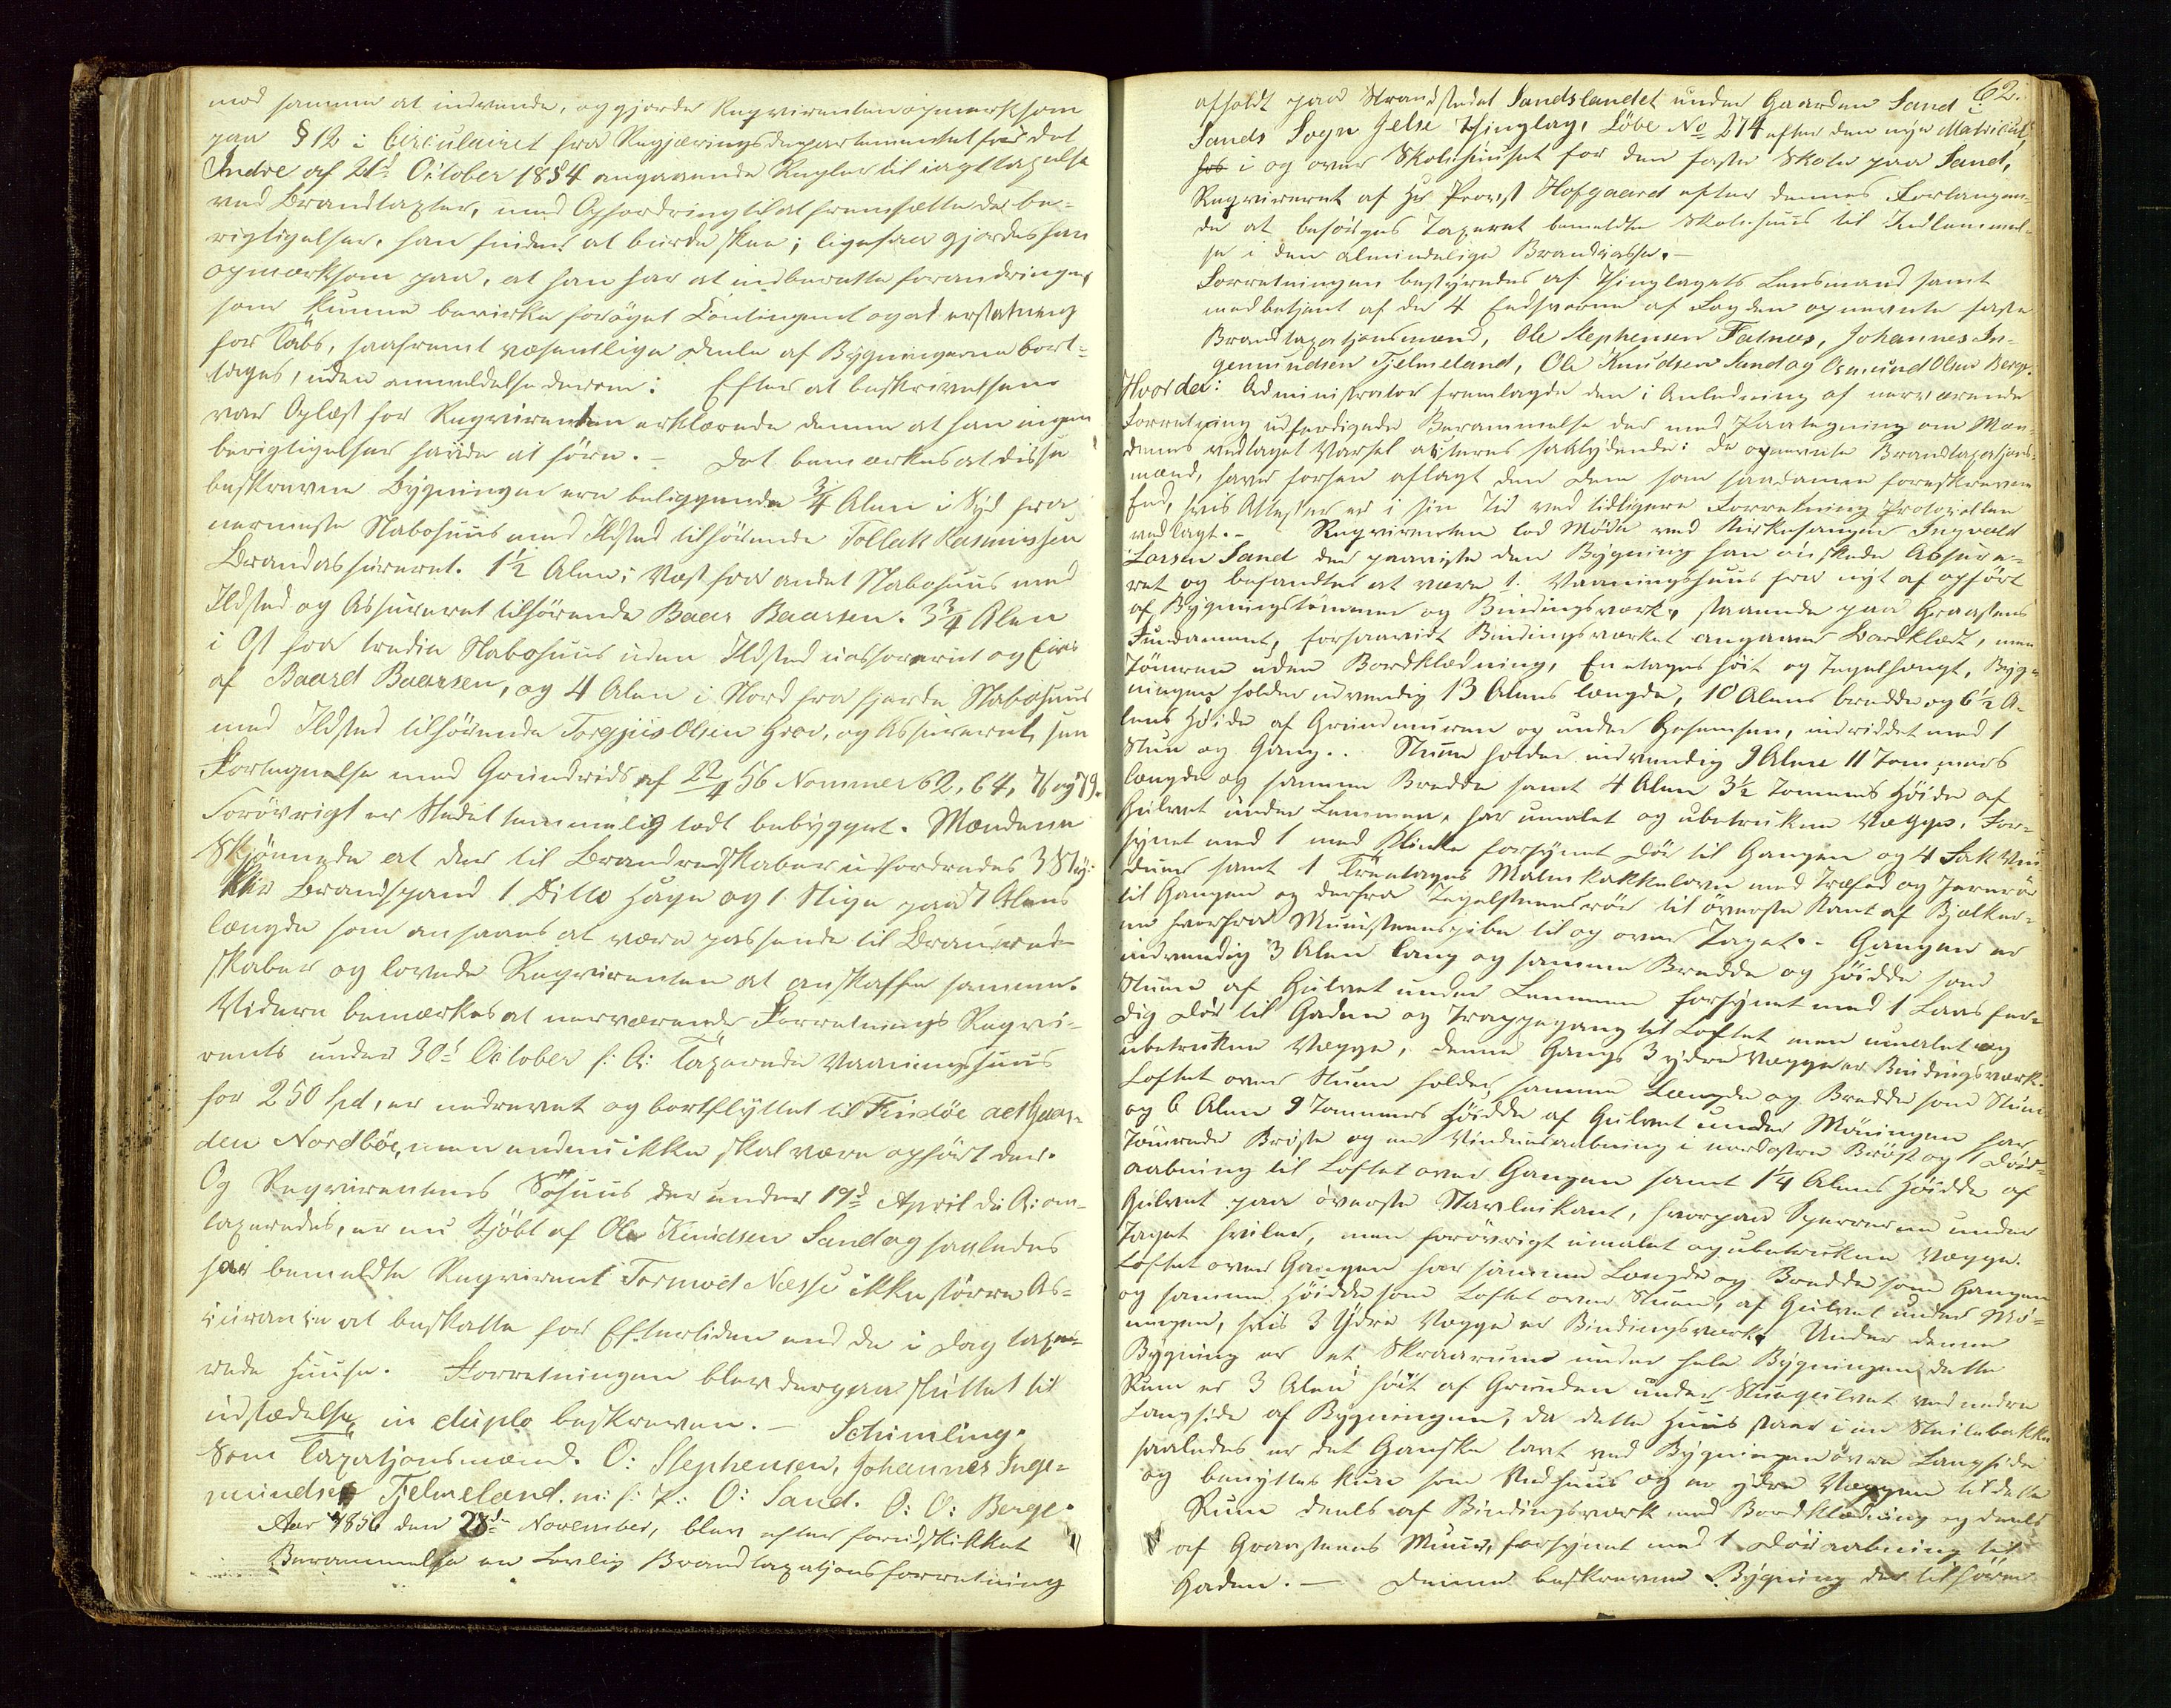 mod samme at indvende, og gjorde Reqvirenten opmærksom
paa § 12 i Circulairet fra Regjæringsdepartementet for det
Indre af 21de October 1854 angaaende Regler til iagttagelse
ved Brandtaxter, med Opfordring til at fremsætte de be-
rigtigelser, han finder at burde skee; ligesaa gjordes han
opmærksom paa, at han har at indberette forandringer,
som kunne bevirke forøget Contingent og at erstatning
for Tabs, saafremt væsentlige Dele af Bygningerne bort-
tages, uden anmeldelse derom: Efter at beskrivelsen
var Oplæst for Reqvirenten erklærede denne at han ingen
berigtigelser havde at føre. – Det bemærkes at disse
beskrevne Bygninger ere beliggende 3/4 Alen i Syd fra
nermeste Nabohuus med Ildsted tilhørende Tollak Rasmussen
Brandassureret. 1 1/2 Alen i Vest fra andet Nabohuus med
Ildsted og Assureret tilhørende Baar Baarsen. 3 3/4 Alen
i Ost fra tredie Nabohuus uden Ildsted uassureret og Eies
af Baard Baarsen, og 4 Alen i Nord fra fjerde Nabohuus
med Ildsted tilhørende Torgjus Olsen Hroe, og Assureret, see
Fortegnelse med Grundrids af 22/4 56 Nommer 62, 64, 76 og 79.
Forøvrigt er Stedet temmelig tæt bebygget. Mændene
Skjønnede at der til Brandredskaber udfordredes 3 Sty-
kker Brandspand 1 Ditto Hage og 1 Stige paa 7 Alens
længde som ansaaes at være passende til Brandred-
skaber og lovede Reqvirenten at anskaffe samme.
Videre bemærkes at nerværende Forretnings Reqvi-
rents under 30te October f: A: Taxerede Vaaningshuus
for 250 Spd, er nedrevet og bortflyttet til Findöe act Gaar-
den Nordböe, men endnu ikke skal være opført der.
Og Reqvirentens Søhuus der under 19de April d: A: om-
taxeredes, er nu Kjøbt af Ole Knudsen Sand og saaledes
har bemeldte Reqvirent Tormod Næsse ikke større As-
surance at beskatte for Eftertiden end de i Dag taxe-
rede Huuse. Forretningen blev derpaa sluttet til
udstædelse in duplo beskreven. – Schimling.
Som Taxationsmænd. O: Stephensen, Johannes Inge-
mundsen Tjelmeland. m: f: P: O: Sand. O: O: Berge.
Aar 1856 den 28de November, blev efter forudskikket
Berammelse en Lovlig Brandtaxationsforretning
62.
afholdt paa Strandstedet Sandslandet under Gaarden Sand i
Sands Sogn Jelse Thinglag, Löbe No 274 efter den nye Matricul,
hos i og over Skolehuuset for den faste Skole paa Sand,
Reqvireret af Hr Provst Hofgaard efter dennes Forlangen-
de at besørges Taxeret bemeldte Skolehuus til Indlemmel-
se i den almindelige Brandcasse. –
Forretningen bestyredes af Thinglagets Lensmand samt
medbetjent af de 4 Eedsvorne af Fogden opnevnte faste
Brandtaxationsmænd, Ole Stephensen Fatnes, Johannes In-
gemundsen Tjelmeland, Ole Knudsen Sand og Osmund Olsen Berge.
Hvorda: Administrator fremlagde den i Anledning af nerværende
Forretning udferdigede Berammelse der med Paategning om Mæn-
denes vedtaget Varsel acteres saalydende: De opnevnte Brandtaxations-
mænd, have forhen aflagt den dem som saadanne foreskrevne
Eed, hvis Attester er i sin Tid ved tidligere Forretning Protocollen
vedlagt. – Reqvirenten lod Møde ved Kirkesanger Ingvald
Larsen Sand der paaviste den Bygning han ønskede Assure-
ret og befandtes at være 1. Vaaningshuus fra nyt af opført
af Bygningstømmer og Bindingsverk, staaende paa Graasteens
Fundament, forsaavidt Bindingsverket angaaer Bordklædt, men
Tømren uden Bordklædning, En etages høit og Tegelhængt, Byg-
ningen holder udvendig 13 Alens længde, 10 Alens bredde og 6 1/2 A-
lens Høide af Grundmuren og under Gesemsen, indreddet med 1
Stue og Gang. . Stuen holder indvendig 9 Alen 11 Tommers
længde og samme Bredde samt 4 Alen 3 1/2 Tommers Høide af
Gulvet under Lemmen, har umalet og ubetrukne Vægge, For-
synet med 1 med Klinke forsynet Dør til Gangen og 4 Fak Vin-
duer samt 1 Treetages Malm Kakkelovn med Træfod og Jernrør
til Gangen og derfra Tegelsteensrør til øverste Kant af Bjælker-
ne hvorfra Muursteenspibe til og over Taget. – Gangen er
indvendig 3 Alen lang og samme Bredde og Høidde som
Stuen af Gulvet under Lemmen forsynet med 1 Laasfær-
dig Dør til Gaden og Trappegang til Loftet men umalet og
ubetrukne Vægge, denne Gangs 3 ydre Vægge er Bindingsverk.
Loftet over Stuen holder samme Længde og Bredde som Stuen
og 6 Alen 9 Tommers Høidde af Gulvet under Møningen har
Tømrede Brøste og en Vinduesaabning i nordostre Brøst og 1 Dør-
aabning til Loftet over Gangen samt 1 1/4 Alens Høidde af
Gulvet paa øverste Stavleikant, hvorpaa Sperrerne under
Taget hviler, men forøvrigt umalet og ubetrukne Vægge.
Loftet over Gangen har samme Længde og Bredde som Gangen
og samme Høidde som Loftet over Stuen, af Gulvet under Mø-
ningen, hvis 3 Ydre Vægge er Bindingsverk. Under denne
Bygning er et Skraarum under hele Bygningen dette
Rum er 3 Alen høit af Grunden under Stuegulvet ved nedre
Langside af Bygningen, da dette Huus staar i en Steilebakke
saaledes er det Ganske lavt ved Bygningen øvre Langside
og benyttes kun som Vedhuus og er ydre Væggene til dette
Rum deels af Bindingsverk med Bordklædning og deels
af Graasteens Muur, forsynet med 1 Døraabning til
Gaden. – Denne beskrevne Bygning der tilhører